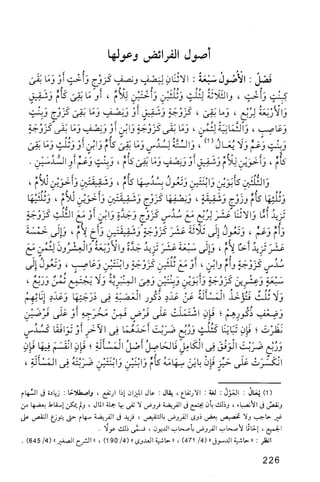 أصول الفرائض وعولها
فَصْلٌ : الأُصُولُ سَبْعَةٌ : الاثْنَانِ لِنِصْفٍ ونِصْفٍ كَزَوْجٍ وَأُخْتٍ أَوْ وَمَا بَقِيَ
كَبِنْتٍ وَأُخْتٍ ، والثَّلَاثَةُ لِثُلُثٍ وَثُلُثَيْنِ وَأُخْتَيْنِ لِلْأُمِّ ، أو مَا بَقِيَ كَأُمٍّ وَشَقِيقٍ
وَالأَرْبَعَةُ لِرُبُعٍ ، وَمَا بَقِيَ ، كَزَوْجَةٍ وَشَقِيقٍ أَوْ وَنِصْفٍ وَمَا بَقِيَ كَزَوْجٍ وَبِنْتٍ
وَعَاصِبٍ ، وَالثَّمَانِيَةُ لِثُمُنٍ ، وَمَا بَقِيَ كَزَوْجَةٍ وَابْنٍ أَوْ وَنِصْفٍ وَمَا بَقِيَ كَزَوْجَةٍ
وَبِنْتٍ وَعَمٍّ وَلَا يُعَالُ (١) ، وَالسِّتَّةُ لِسُدُسٍ وَمَا بَقِيَ كَأُمٍّ وَابْنٍ أَوْ وَثُلُثٍ وَمَا بَقِيَ
كَأُمٍّ ، وَأَخَوَيْنِ لِلْأُمِّ وَشَقِيقٍ أَوْ وَنِصْفٍ وَمَا بَقِيَ كَأُمٍّ ، وَبِنْتٍ وَعَمٍّ أَوِ السُّدُسَيْنِ .
وَالثُّلُثَيْنِ كَأَبَوَيْنِ وَابْنَتَيْنِ وَتَعُولُ بِسُدُسِهَا كَأُمٍّ ، وَشَقِيقَتَيْنِ وَأَخَوَيْنِ لِلْأُمِّ ،
وَثُلُثِهَا كَأُمٍّ وزَوْجٍ وَشَقِيقَتَيْنِ ، وَنِصْفِهَا كَزَوْجٍ وَشَقِيقَتَيْنِ وَأَخَوَيْنِ لِلْأُمِّ ، وَثُلُثَيْهَا
تَزِيدُ أُمًّا وَالاثْنَا عَشَرَ لِرُبُعٍ مَعَ سُدُسٍ كَزَوْجٍ وَجَدَّةٍ وَابْنٍ أَوْ مَعَ الثُّلُثِ كَزَوْجَةٍ
وَأُمٍّ وَعَمٍّ ، وَتَعُولُ إِلَى ثَلَاثَةَ عَشَرَ كَزَوْجَةٍ وَشَقِيقَتَيْنِ وَأَخٍ لِأُمٍّ ، وَإِلَى خَمْسَةَ
عَشَرَ تَزِيدُ أَخًا لِأُمٍّ ، وَإِلَى سَبْعَةَ عَشَرَ تَزِيدُ جَدَّةً وَالأَرْبَعَةُ وَالْعِشْرُونَ لِثُمُنٍ مَعَ
سُدُسٍ كَزَوْجَةٍ وأُمٍّ وابْنٍ ، أَوْ مَعَ ثُلُثَيْنِ كَزَوْجَةٍ وَابْنَتَيْنِ وَعَاصِبٍ ، وَتَعُولُ إِلَى
سَبْعَةٍ وَعِشْرِينَ كَزَوْجَةٍ وَأَبَوَيْنِ وَبِنْتَيْنِ وَهِيَ الْمِنْبَرِيَّةُ وَلَا يَجْتَمِعُ ثُمُنٌ وَرُبُعٌ ،
وَلَا ثُلُثٌ فَتُؤْخَذُ الْمَسْأَلَةُ مِنْ عَدَدِ ذُكُورِ الْعَصَبَةِ فِي دَرَجَتِهَا وَعَدَدِ إِنَاثِهِمْ
وَضِعْفِ ذُكُورِهِمْ ؛ فَإِنِ اشْتَمَلَتْ عَلَى فَرْضٍ فَمِنْ مَخْرَجِهِ أَوْ عَلَى فَرْضَيْنِ
نَظَرْتَ ؛ فَإِنْ تَبَايَنَا كَثُلُثٍ وَرُبُعٍ ضَرَبْتَ أَحَدَهُمَا فِي الآخَرِ أَوْ تَوَافَقَا كَسُدُسٍ
وَرُبُعٍ ضَرَبْتَ الْوَفْقَ فِي الْكَامِلِ فَالحَاصِلُ أَصْلُ الْمَسْأَلَةِ ؛ فَإِنِ انْقَسَمَ فِيهَا فَإِنِ
انْكَسَرَتْ عَلَى حَيِّزٍ فَإِنْ بَايَنَ سِهَامَهُ كَأُمٍّ وَابْنَيْنِ وَابْنَتَيْنِ ضَرَبْتَهُ فِي الْمَسْأَلَةِ ،
(١) يُعَالُ : العَوْلُ : لغة : الارتفاع ، يقال : عال الميزان إذا ارتفع ، واصطلاحًا : زيادة في السِّهام
ونقصٌ في الأنصباء ، وذلك بأن يجتمع في الفريضة فروض لا تفي بها جملة المال ، ولم يمكن إسقاط بعضها من
غير حاجب ولا تخصيص بعض ذوي الفروض بالتنقيص ، فزيد في الفريضة سهام حتى يتوزع النقص على
الجميع ، إلحاقًا لأصحاب الفروض بأصحاب الديون ، فسمي ذلك عولًا .
انظر : « حاشية الدسوقي » (4/ 471) ، « حاشية العدوي » (4/ 190) ، « الشرح الصغير » (4/ 645) .
226